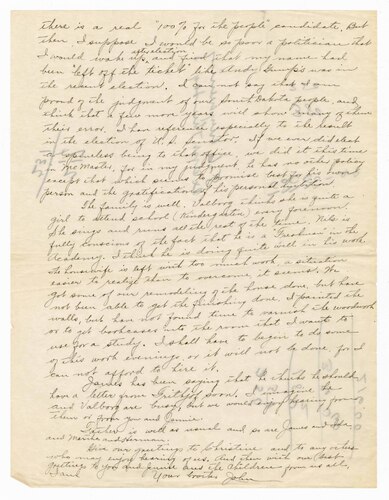 there is a real "100% for the people" candidate. But
then I suppose I would be so poor a politician that
I would wake up after election and find that my name had
been left off the ticket like Andy Gump's was in
the recent election. I can not say that I am
proud of the judgment of our South Dakota people, and
think that a few more years will show many of them
their error. I have reference especially to the result
in the election of U.S. Senator. If we ever did elect
a spineless being to that office, we did it this time
in McMaster, for in my judgment he has no other policy
except that which seems to promise best for his own
person and the gratification of his personal ambition
The family is well. Valborg thinks she is quite a
girl to attend school (Kindergarten) every forenoon
She sings and runs all the rest of the time. Nels is
fully conscious of the fact that he is a "Freshman" in the
Academy. I think he is doing quite well in his work.
The housewife is left with too much work a situation
easier to realize than to overcome it seems. We
got some of our remodeling of the house done, but have
not been able to get the finishing done. I painted the
walls, but have not found time to varnish the woodwork
or to get bookcases into the room that I want to
use for a study. I shall have to begin to do some
of this work evenings, or it will not be done, for I
can not afford to hire it.
James has been saying that he thinks he should
have a letter from soon. I imagine he
and Valborg are busy, but we would enjoy hearing from
them or from you and Jennie.
Father is well as usual and so are James and
and Martha and Herman.
Give our greetings to Christine and to any others
who may enjoy hearing of us. And then with our best
greetings to you and Jennie and the children from us all,
Your brother John